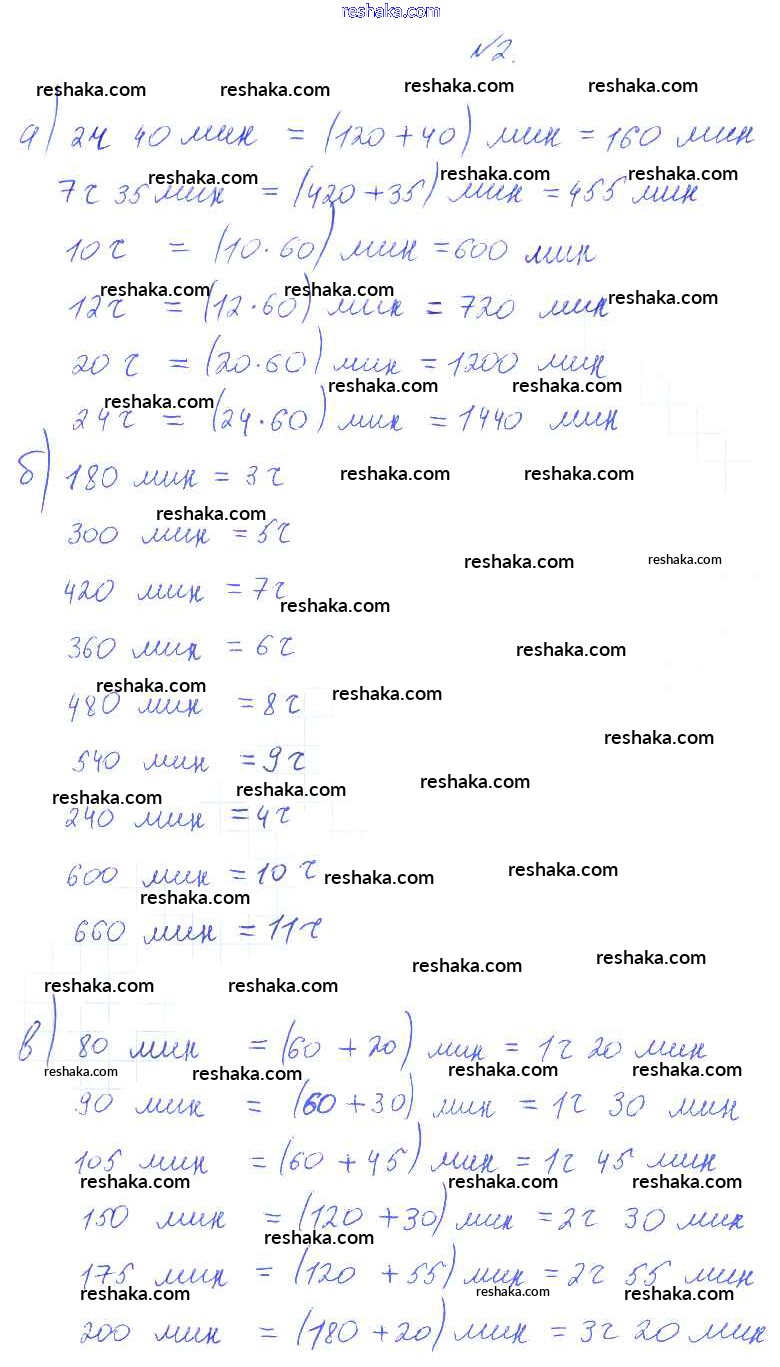 reshaka.com
№2.
reshaka.com reshaka.com reshaka.com reshaka.com
а) 2ч 40 мин = (120 + 40) мин = 160 мин
reshaka.com reshaka.com reshaka.com
7ч 35 мин = (420 + 35) мин = 455 мин
10ч = (10·60) мин = 600 мин
reshaka.com reshaka.com reshaka.com
12ч = (12·60) мин = 720 мин
20ч = (20·60) мин = 1200 мин
reshaka.com reshaka.com reshaka.com
24ч = (24·60) мин = 1440 мин
б) 180 мин = 3ч reshaka.com reshaka.com
reshaka.com
300 мин = 5ч
reshaka.com reshaka.com
420 мин = 7ч
reshaka.com
360 мин = 6ч reshaka.com
reshaka.com reshaka.com
480 мин = 8ч
reshaka.com
540 мин = 9ч
reshaka.com reshaka.com reshaka.com
240 мин = 4ч
600 мин = 10ч reshaka.com reshaka.com
reshaka.com
660 мин = 11ч
reshaka.com reshaka.com
reshaka.com reshaka.com
в) 80 мин = (60 + 20) мин = 1ч 20 мин
reshaka.com reshaka.com reshaka.com reshaka.com
90 мин = (60 + 30) мин = 1ч 30 мин
105 мин = (60 + 45) мин = 1ч 45 мин
reshaka.com reshaka.com reshaka.com
150 мин = (120 + 30) мин = 2ч 30 мин
reshaka.com
175 мин = (120 + 55) мин = 2ч 55 мин
reshaka.com reshaka.com reshaka.com
200 мин = (180 + 20) мин = 3ч 20 мин